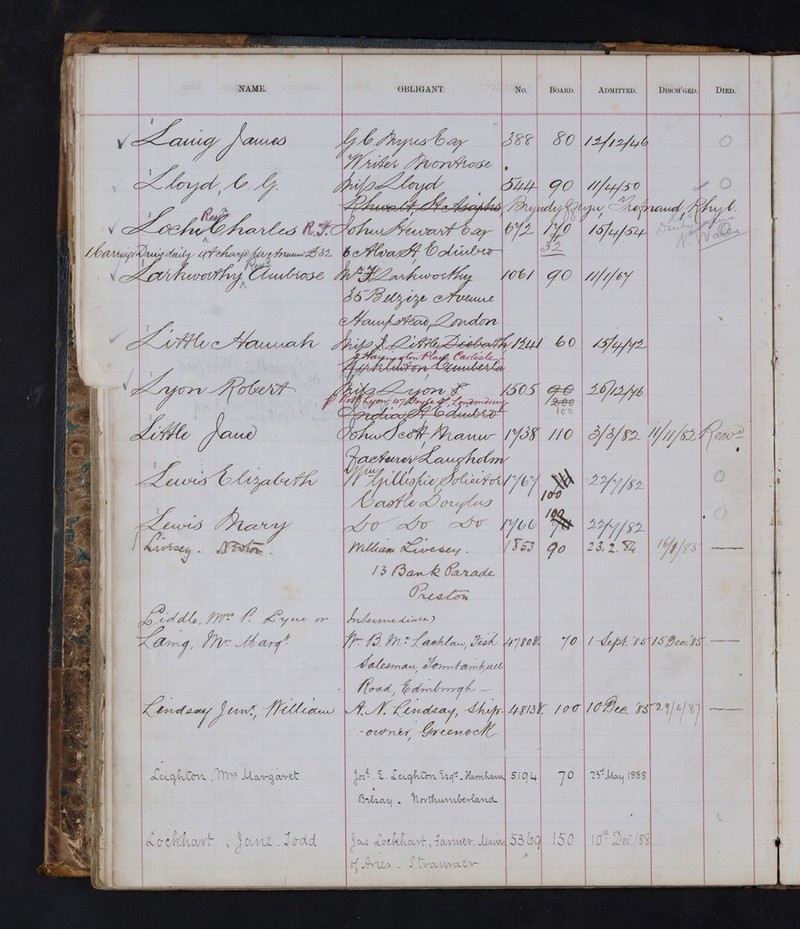 NAME. OBLIGANT. No. BOARD. ADMITTED. DISCH'GED. DIED.
Laing James G. C. Myers Esq 388 80 12/12/46
Writer Montrose
Lloyd, C. G. Miss Lloyd 544 90 11/4/50
Rhualt, St Asaphs, Rhyl.
Revd
Charles R.H. John Stewart Esq 672 170 15/4/54
1 Carriage Drive daily extra charge per Annum £ 32 6 Alva St. Edinbro 32
Revd
Larkworthy Ambrose Mr Larkworthy 1061 90 11/1/67
35 Belzize Avenue
Hampstead, London
Little Hannah Miss J. Little 1241 60 15/4/72
Place Carlisle
Kirklinton Cumberla
Lyon Robert Miss Lyon 1505 90 26/12/76
Lyon, 47 St. Londonderry 200
India St Edinbro 100
Little Jane John Scott, Manu 1738 110 3/3/82 11/11/82
facturer Langholm
Lewis Elizabeth Wm Gillespie, Solicitor 1767 22/7/82
Castle Douglas 100
100
Lewis Mary Do Do Do 1766 70 22/7/82
Livesey. William Livesey. 1853 90 23.2.84
13 Bank Parade
Preston
Liddle, Mrs P. Lyne or Intermediate)
Laing, Mrs Margt W. B. McLachlan, Fish 4780 70 1 Sept. '85 15 Dec. '85
Salesman,
Road, Edinburgh
Lindsay Junr, William A. N. Lindsay, Ship- 4813 100 10 Dec. '85 29/6/87
-owner, Greenock
Leighton, Mrs Margaret E. Leighton Esqr. Harnham 5194 70 23d May 1888
Belsay. Northumberland
Lockhart, Jane Todd Jas Lockhart, Farmer, Mains 5369 150 10th Dec /88
of Stranraer